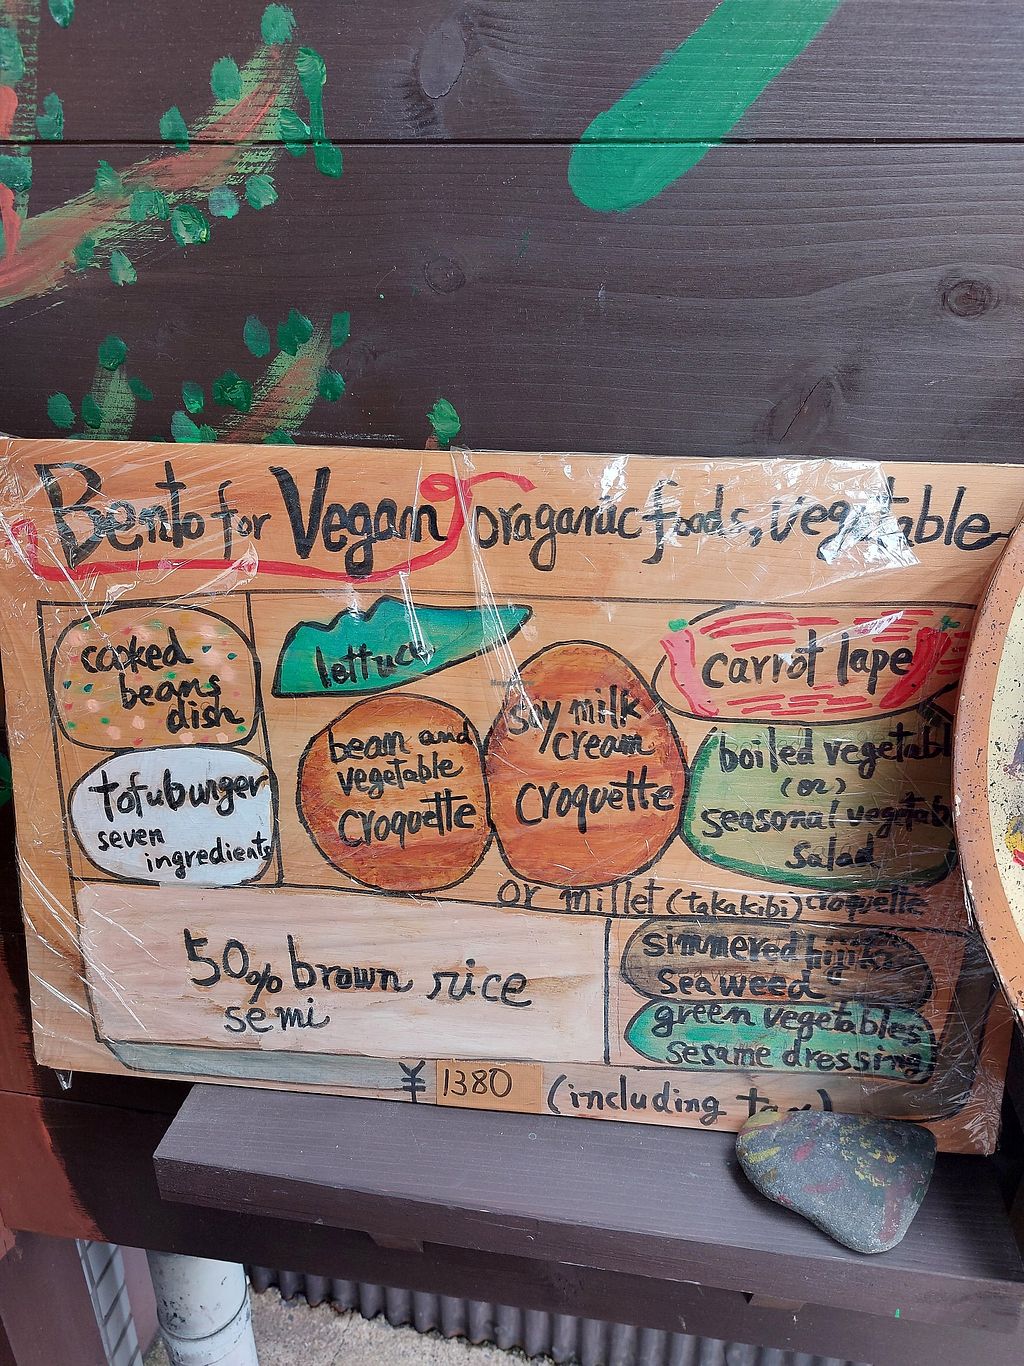 Bento for Vegan oraganic foods, vegetable
cooked
beans
dish
lettuce
carrot lape
tofuburger
seven
ingredients
bean and
vegetable
croquette
soy milk
cream
croquette
boiled vegetabl
(or)
seasonal vegetab
salad
or millet (takakibi) croquette
50% brown rice
semi
simmered hijiki
seaweed
green vegetables
sesame dressing
¥ 1380 (including tax)